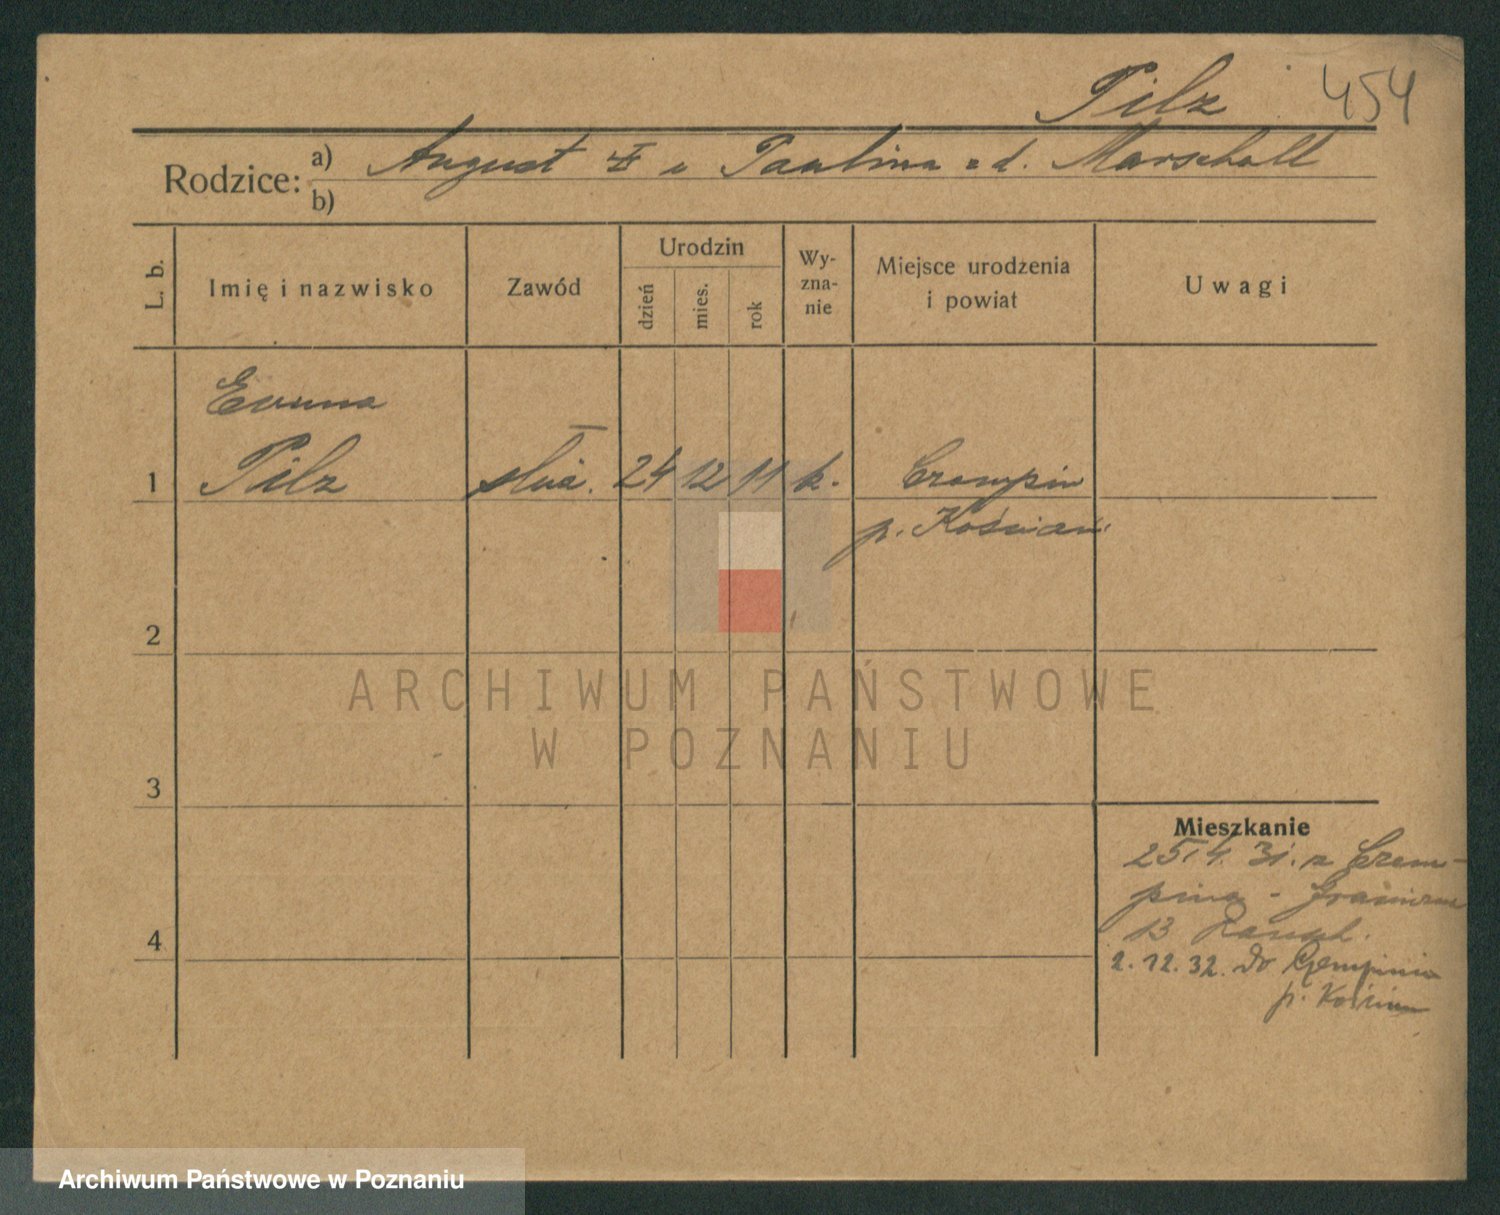 Pilz 454
Rodzice: a) August i Paulina z d. Marschall
b)
L. b.
Imię i nazwisko
Zawód
Urodzin
dzień
mies.
rok
Wy-
zna-
nie
Miejsce urodzenia
i powiat
Uwagi
Emma
1 Pilz służ. 24 12 11 k. Czempin
p. Kościan
2
3
4
Mieszkanie
25.4.31. z Czem-
pina - Graniczna
13
2.12.32. do Czempinia
p. Kościan
ARCHIWUM PAŃSTWOWE
W POZNANIU
Archiwum Państwowe w Poznaniu